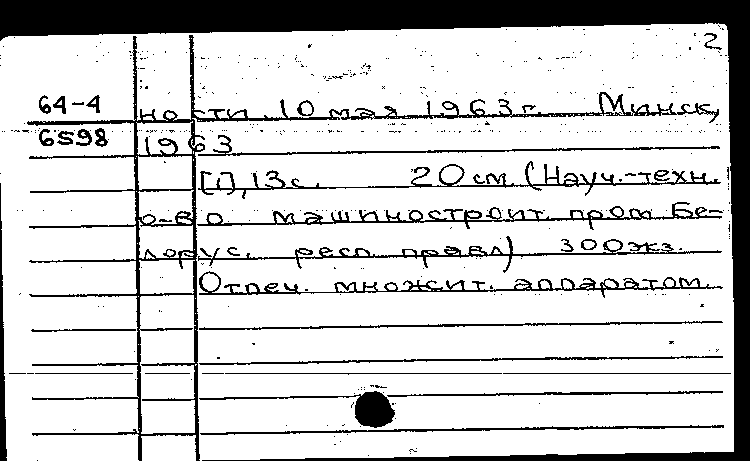 2
64-4 ности. 10 мая 1963г. Минск,
6598 1963
[1], 13с. 20см. (Науч.-техн.
о-во машиностроит. пром. Бе-
лорус. респ. правл) 300экз.
Отпеч. множит. аппаратом.